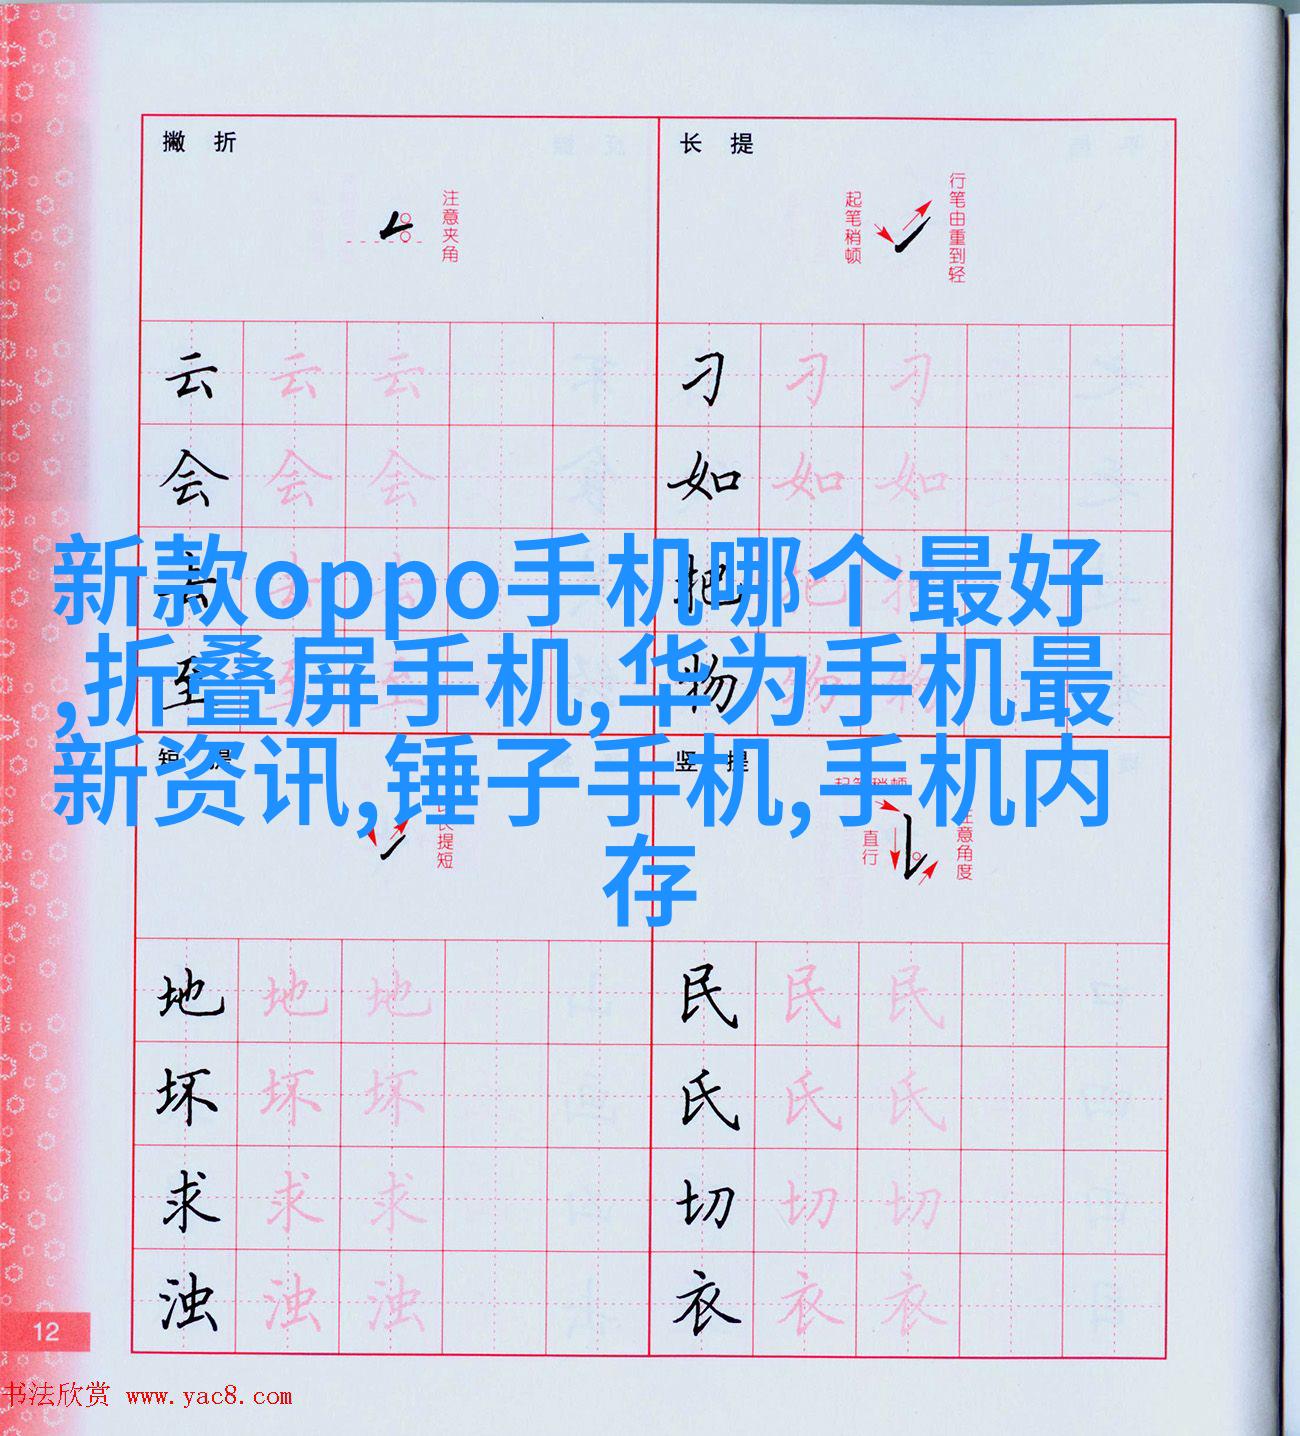 撇 折
注意夹角
长 提
起笔稍顿
行笔由重到轻
云 云 云
刁 刁 刁
会 会 会
如 如 如
去 去 去
把 把 把
至 至 至
物 物 物
新款oppo手机哪个最好
,折叠屏手机,华为手机最
新资讯,锤子手机,手机内
存
短 提
长提短
竖 提
起笔稍顿
直行
注意角度
地 地 地
民 民 民
坏 坏 坏
氏 氏 氏
求 求 求
切 切 切
浊 浊 浊
衣 衣 衣
12
书法欣赏 www.yac8.com